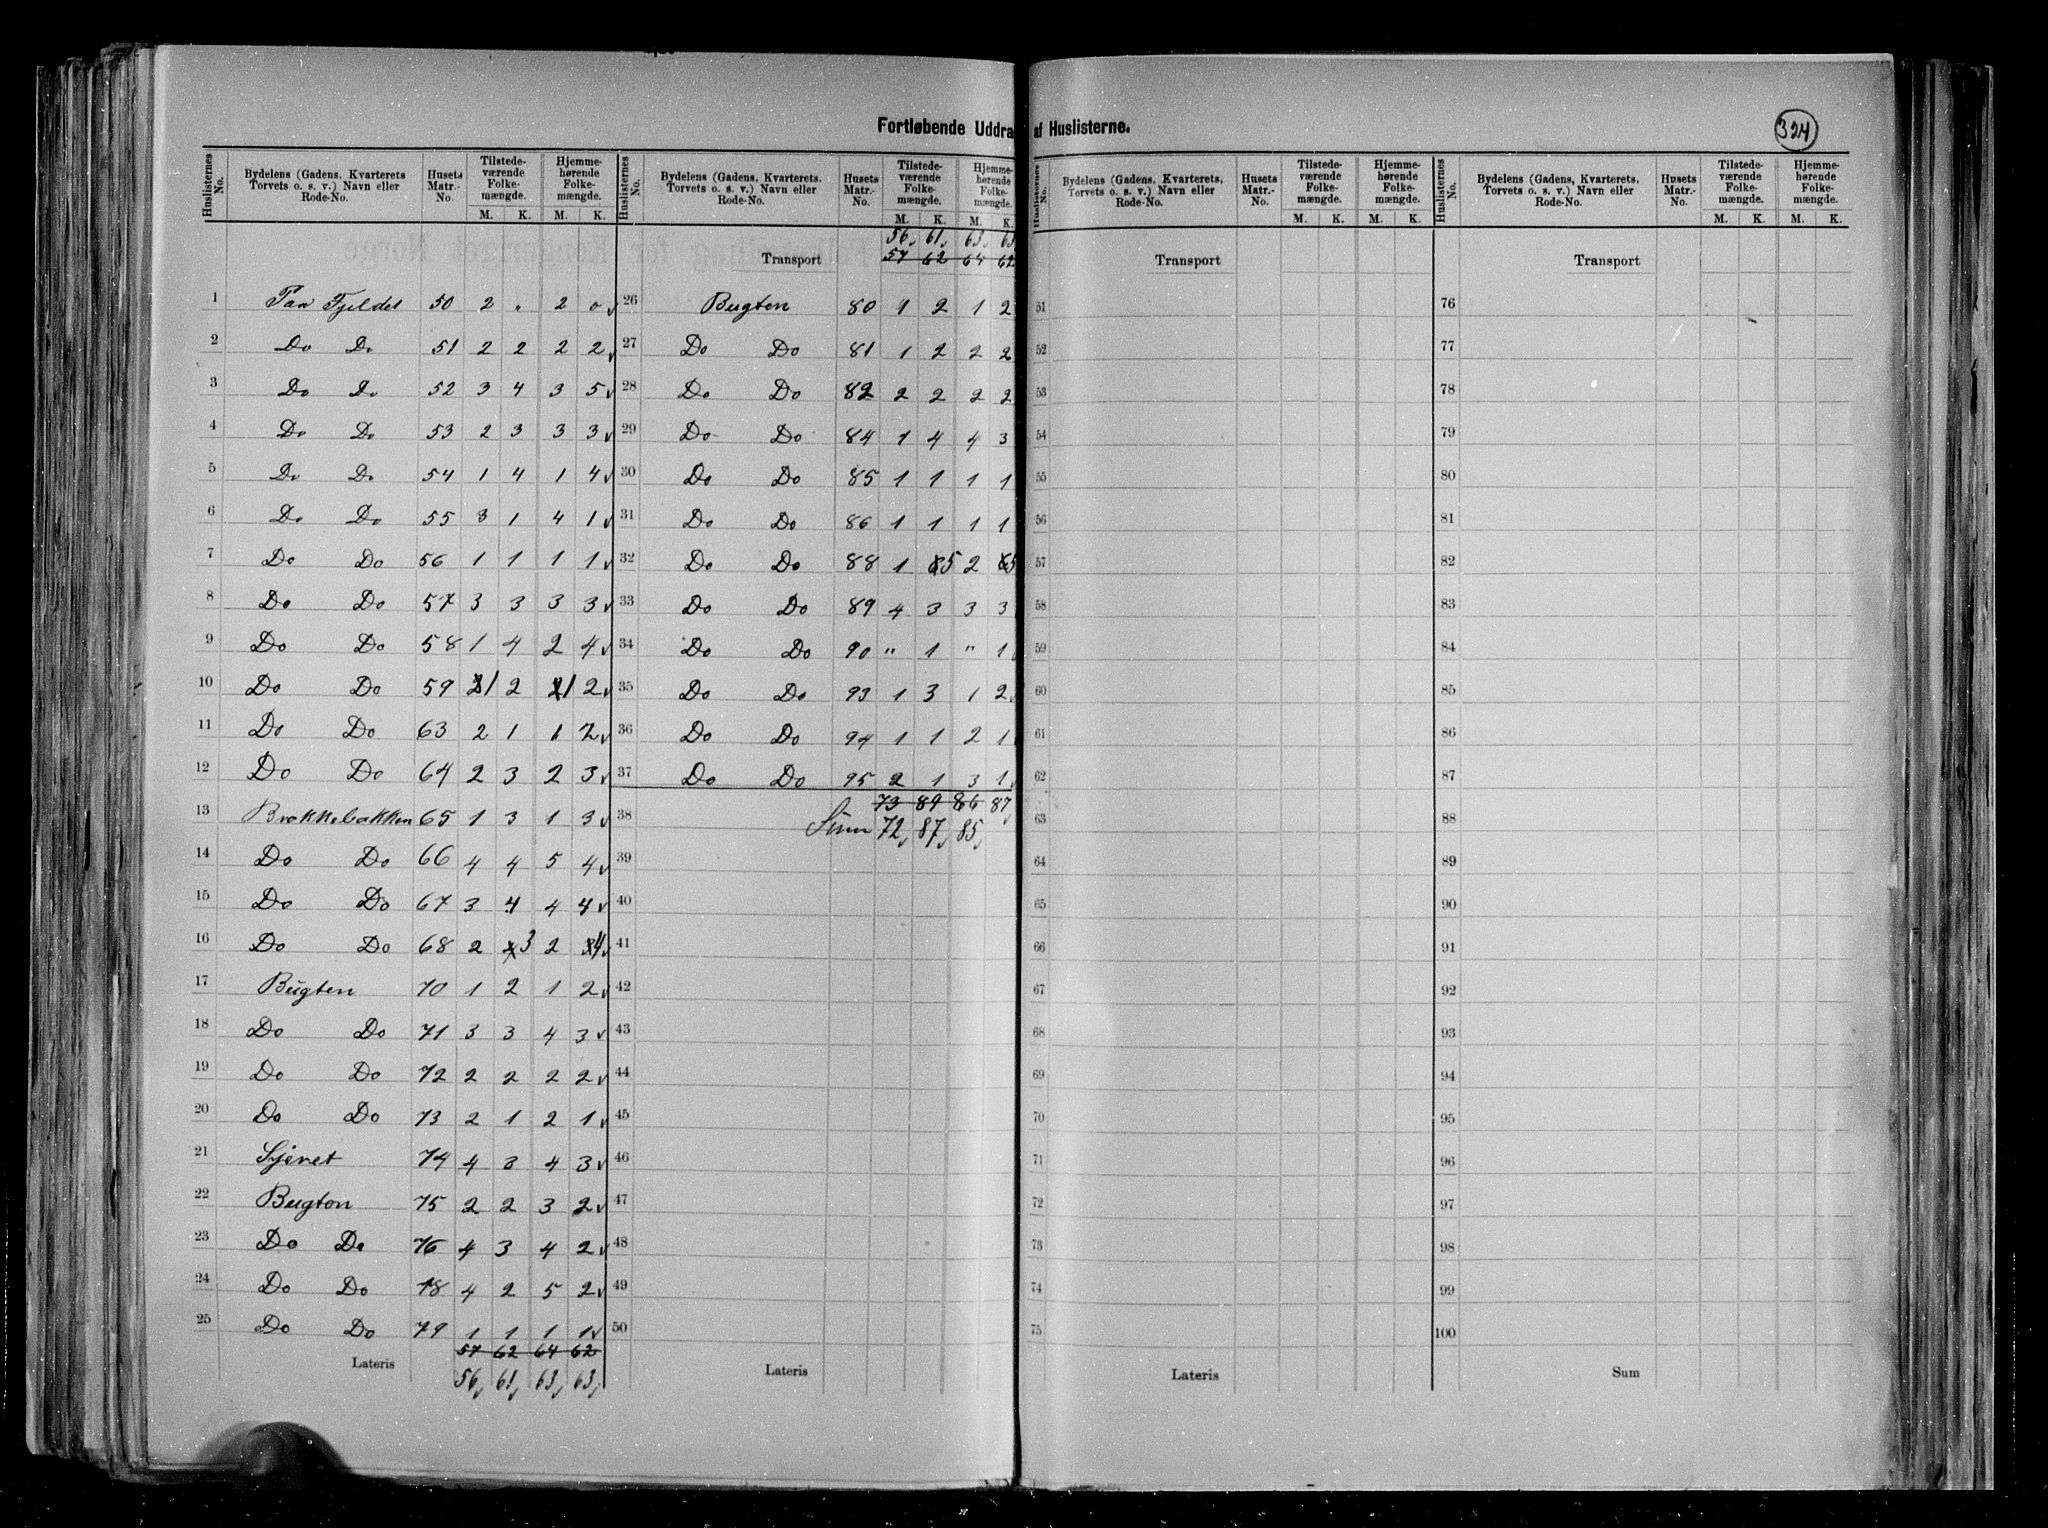 Fortløbende Uddra af Huslisterne.
324
Huslisternes No. Bydelens (Gadens, Kvarterets, Torvets o. s. v.) Navn eller Rode-No. Husets Matr.-No. Tilstedeværende Folkemængde. M. K. Hjemmehørende Folkemængde. M. K.
1 Paa Fjeldet 50 2 " 2 0
2 Do Do 51 2 2 2 2
3 Do Do 52 3 4 3 5
4 Do Do 53 2 3 3 3
5 Do Do 54 1 4 1 4
6 Do Do 55 3 1 4 1
7 Do Do 56 1 1 1 1
8 Do Do 57 3 3 3 3
9 Do Do 58 1 4 2 4
10 Do Do 59 1 2 1 2
11 Do Do 63 2 1 1 2
12 Do Do 64 2 3 2 3
13 Brekkebakken 65 1 3 1 3
14 Do Do 66 4 4 5 4
15 Do Do 67 3 4 4 4
16 Do Do 68 2 3 2 4
17 Bugten 70 1 2 1 2
18 Do Do 71 3 3 4 3
19 Do Do 72 2 2 2 2
20 Do Do 73 2 1 2 1
21 74 4 3 4 3
22 Bugten 75 2 2 3 2
23 Do Do 76 4 3 4 2
24 Do Do 78 4 2 5 2
25 Do Do 79 1 1 1 1
57 62 64 62
Lateris 56 61 63 63
Huslisternes No. Bydelens (Gadens, Kvarterets, Torvets o. s. v.) Navn eller Rode-No. Husets Matr.-No. Tilstedeværende Folkemængde. M. K. Hjemmehørende Folkemængde. M. K.
56 61 63 63
Transport 57 62 64 62
26 Bugten 80 1 2 1 2
27 Do Do 81 1 2 2 2
28 Do Do 82 2 2 2 2
29 Do Do 84 1 4 4 3
30 Do Do 85 1 1 1 1
31 Do Do 86 1 1 1 1
32 Do Do 88 1 5 2 5
33 Do Do 89 4 3 3 3
34 Do Do 90 " 1 " 1
35 Do Do 93 1 3 1 2
36 Do Do 94 1 1 2 1
37 Do Do 95 2 1 3 1
73 89 86 87
38 Sum 72 87 85
39
40
41
42
43
44
45
46
47
48
49
50
Lateris
Huslisternes No. Bydelens (Gadens, Kvarterets, Torvets o. s. v.) Navn eller Rode-No. Husets Matr.-No. Tilstedeværende Folkemængde. M. K. Hjemmehørende Folkemængde. M. K.
Transport
51
52
53
54
55
56
57
58
59
60
61
62
63
64
65
66
67
68
69
70
71
72
73
74
75
Lateris
Huslisternes No. Bydelens (Gadens, Kvarterets, Torvets o. s. v.) Navn eller Rode-No. Husets Matr.-No. Tilstedeværende Folkemængde. M. K. Hjemmehørende Folkemængde. M. K.
Transport
76
77
78
79
80
81
82
83
84
85
86
87
88
89
90
91
92
93
94
95
96
97
98
99
100
Sum